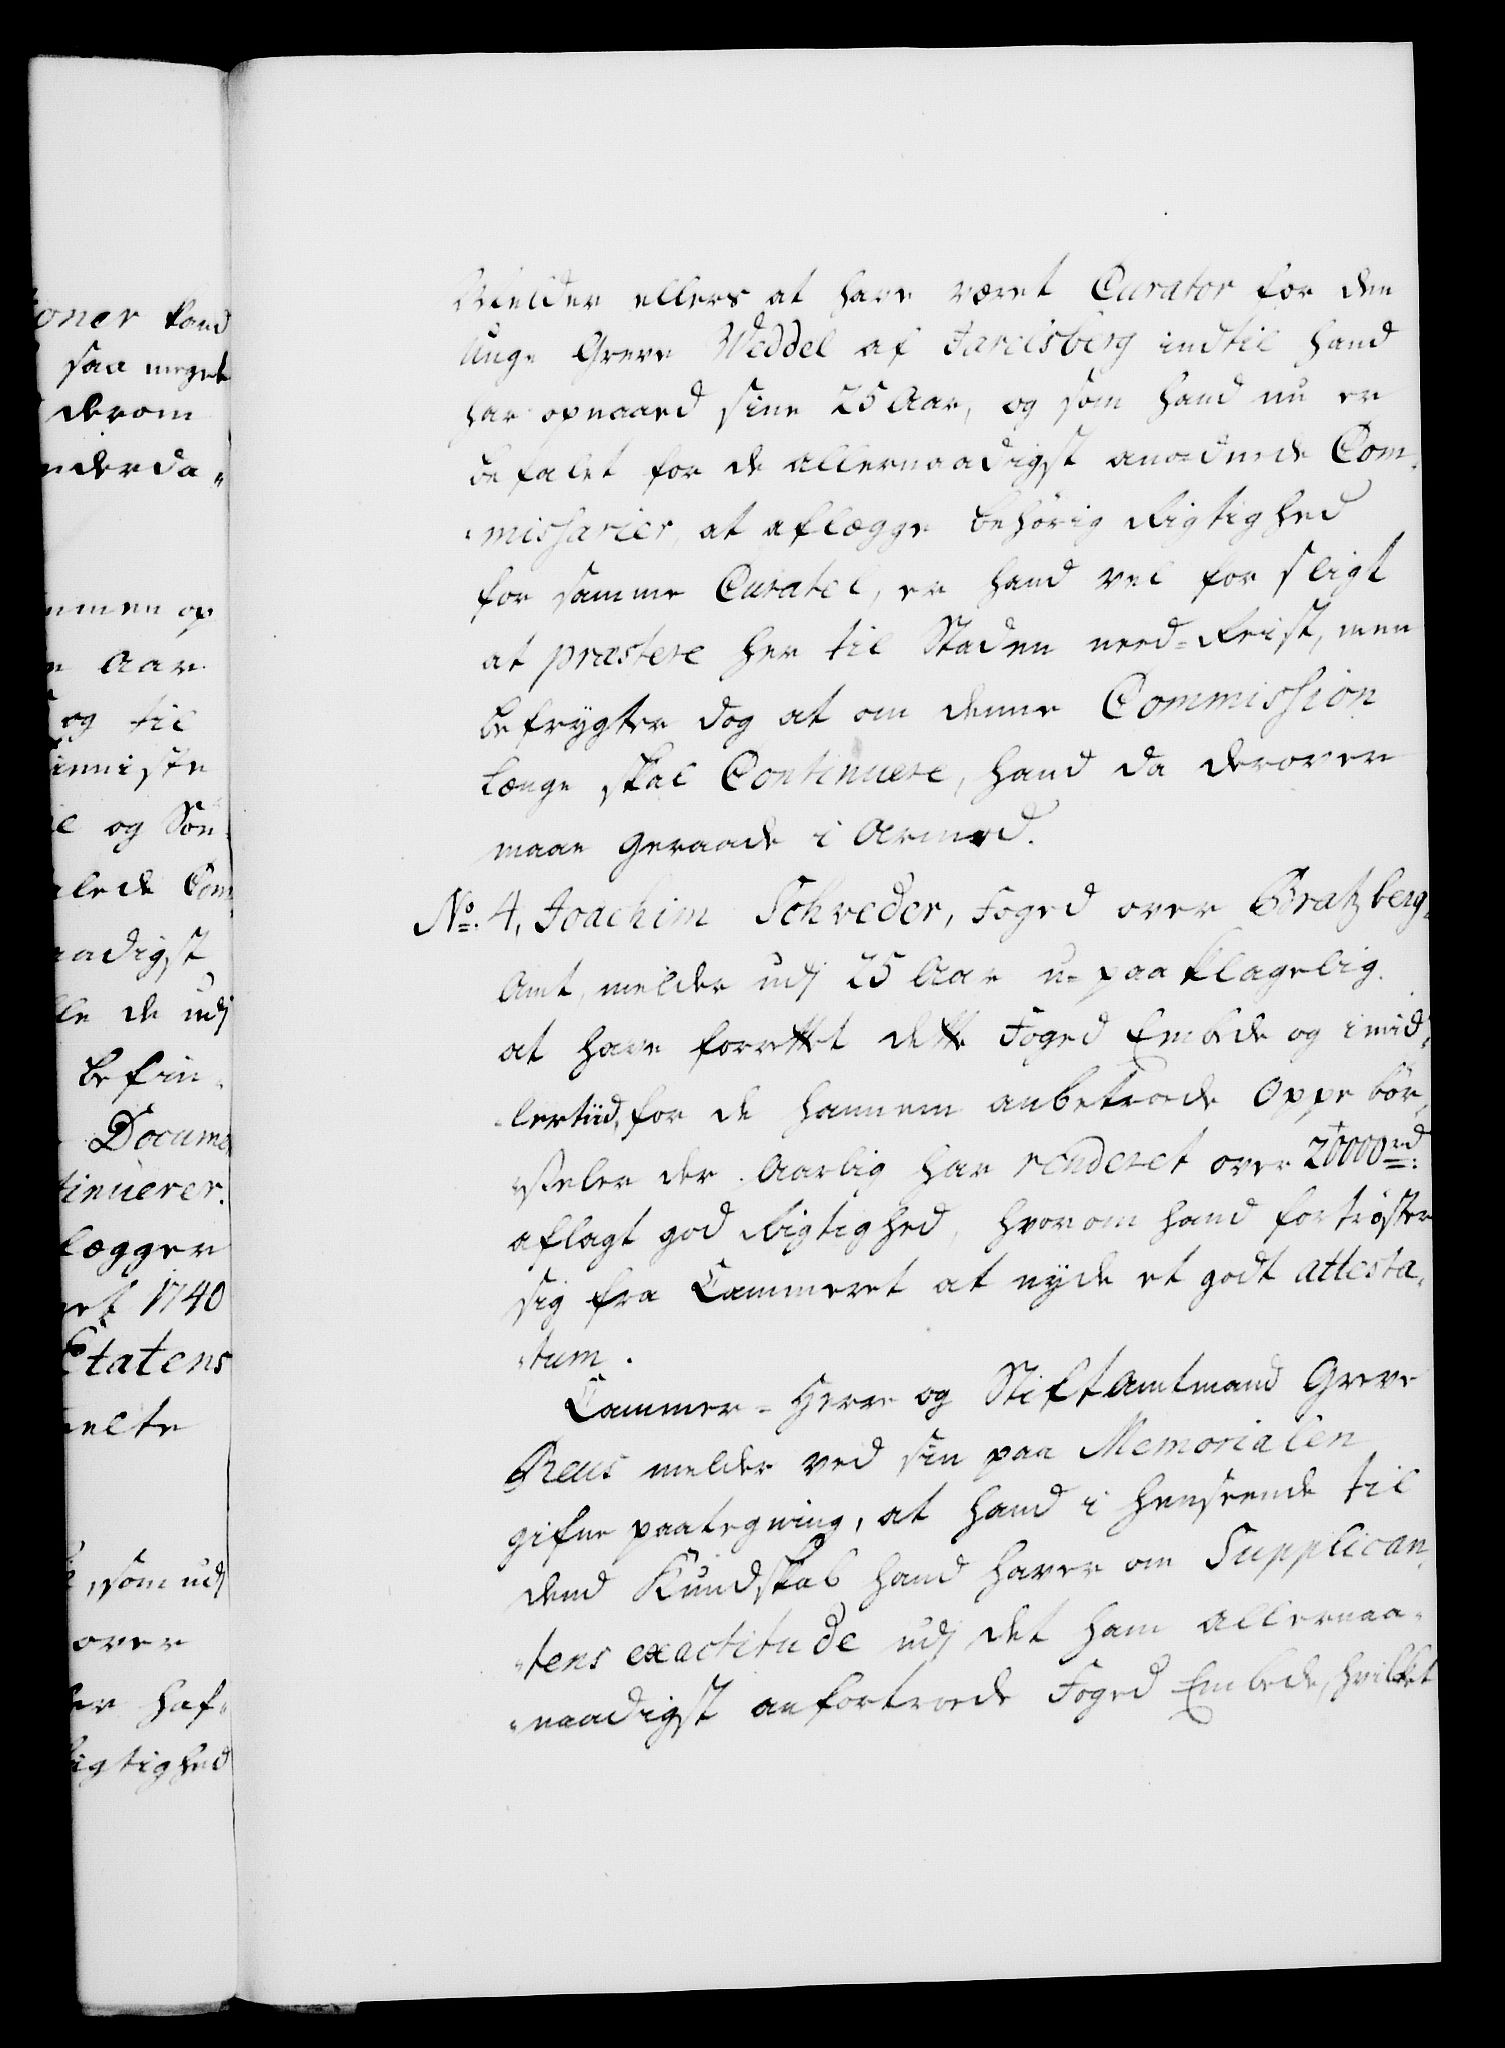 oner kand
saa meget
derom
nderda„
mmen op
Aar
og til
inniste
og Søn„
lede Com„
aadigst
de udj
befin„
Docume
tinuerer.
lægger
1740
Etatens
melte
, som udj
over
haf„
Rigtighed
Melder ellers at have været Curator for den
unge Greve Weddel af Jarlsberg indtil hand
har opnaaed sine 25 Aar, og som hand nu er
befalet for de allernaadigst anordnede Com„
„missarier, at aflægge behørig Rigtighed
for samme Curatel, er hand vel for sligt
at præstere her til Staden need-Reist, men
befrygter dog at om denne Commission
længe skal Continuere, hand da derover
maae geraade i Armod.
No. 4, Joachim Schreder, Foged over Bratzberg„
Amt, melder udj 25 Aar u-paaklagelig
at have forrettet dette Foged Embede og imid„
„lertiid, for de hannem anbetroede Oppebør„
„Seler der Aarlig har renderet over 20000 rd.
aflagt god Rigtighed, hvorom hand fortrøster
sig fra Cammeret at nyde et godt attesta„
„tum.
Cammer-Herre og Stiftamtmand Greve
Reus melder ved sin paa Memorialen
gifne paategning, at hand i henseende til
dend Kundskab hand haver om Supplican„
„tens exactitude udj det ham allernaa„
„naadigst anfortroede Foged Embede, hvilket